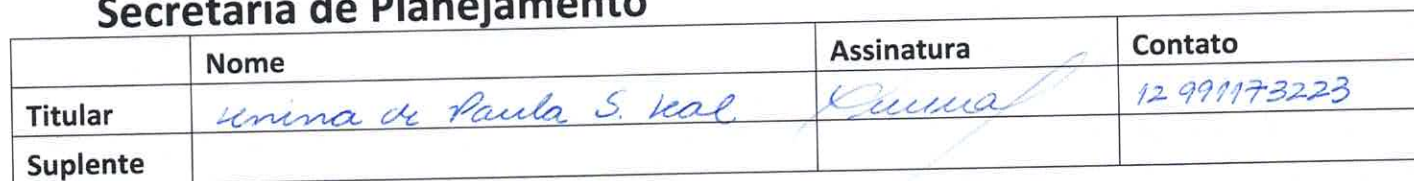 Secretaria de Planejamento
Nome Assinatura Contato
Titular de Paula S. Leal 12 991173223
Suplente